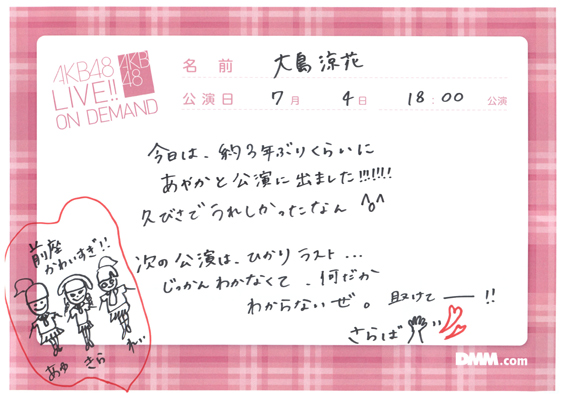 AKB48
LIVE!!
ON DEMAND
AKB
48
名前 大島涼花
公演日 7月 4日 18:00 公演
今日は、約3年ぶりくらいに
あやかと公演に出ました!!!!!!!
久びさでうれしかったなん ^o^
次の公演は、ひかりラスト...
じっかんわかなくて、何だか
わからないぜ。助けてー!!
さらば
前座
かわいすぎ!!
あゆ
きら
れい
DMM.com